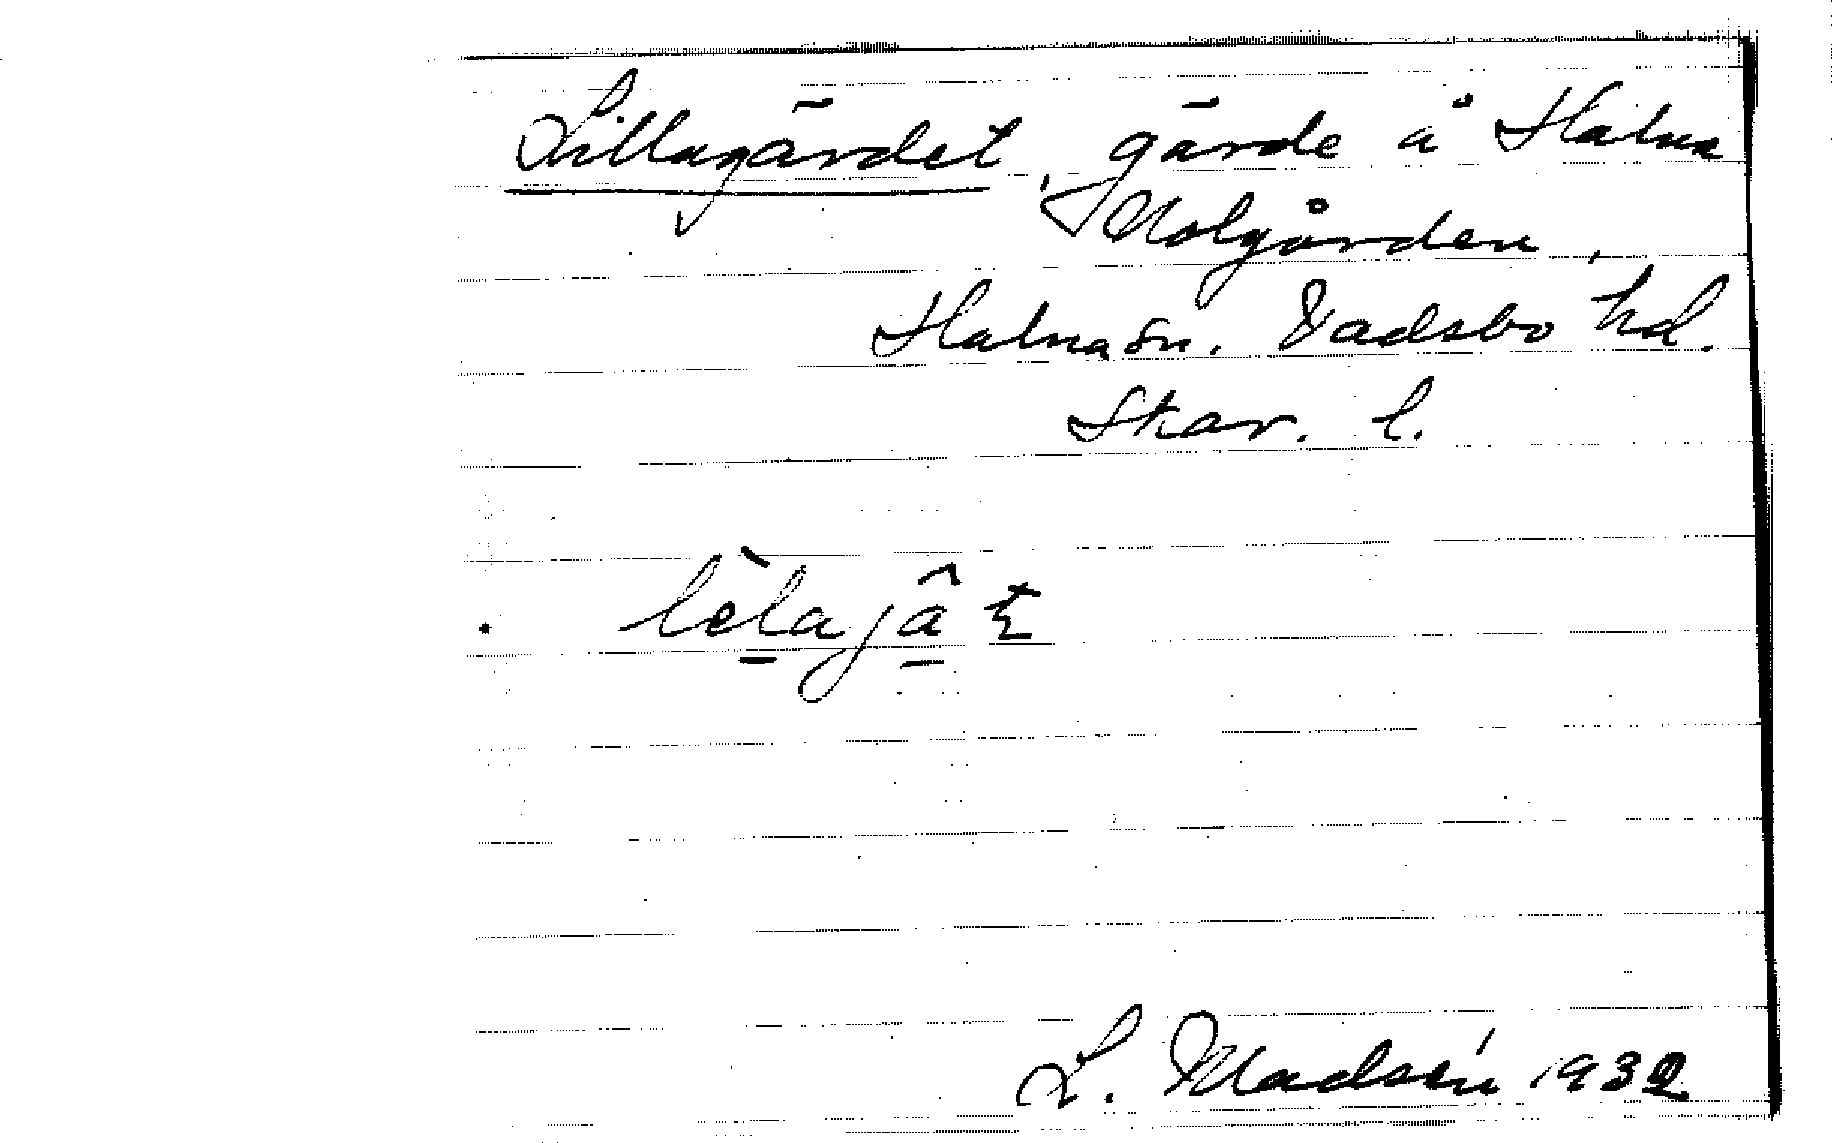 Lillagärdet, gärde å Halna
Holgården,
Halna sn. Vadsbo hd.
Skar. l.
L. Madsén 1932